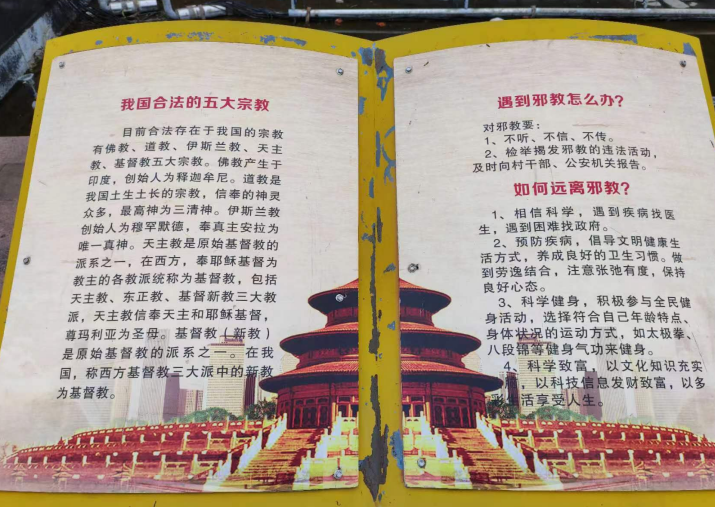 我国合法的五大宗教
目前合法存在于我国的宗教
有佛教、道教、伊斯兰教、天主
教、基督教五大宗教。佛教产生于
印度，创始人为释迦牟尼。道教是
我国土生土长的宗教，信奉的神灵
众多，最高神为三清神。伊斯兰教
创始人为穆罕默德，奉真主安拉为
唯一真神。天主教是原始基督教的
派系之一，在西方，奉耶稣基督为
教主的各教派统称为基督教，包括
天主教、东正教、基督新教三大教
派，天主教信奉天主和耶稣基督，
尊玛利亚为圣母。基督教（新教）
是原始基督教的派系之一。在我
国，称西方基督教三大派中的新教
为基督教。
遇到邪教怎么办？
对邪教要：
1、不听、不信、不传。
2、检举揭发邪教的违法活动，
及时向村干部、公安机关报告。
如何远离邪教？
1、相信科学，遇到疾病找医
生，遇到困难找政府。
2、预防疾病，倡导文明健康生
活方式，养成良好的卫生习惯。做
到劳逸结合，注意张弛有度，保持
良好心态。
3、科学健身，积极参与全民健
身活动，选择符合自己年龄特点、
身体状况的运动方式，如太极拳、
八段锦等健身气功来健身。
4、科学致富，以文化知识充实
，以科技信息发财致富，以多
彩生活享受人生。